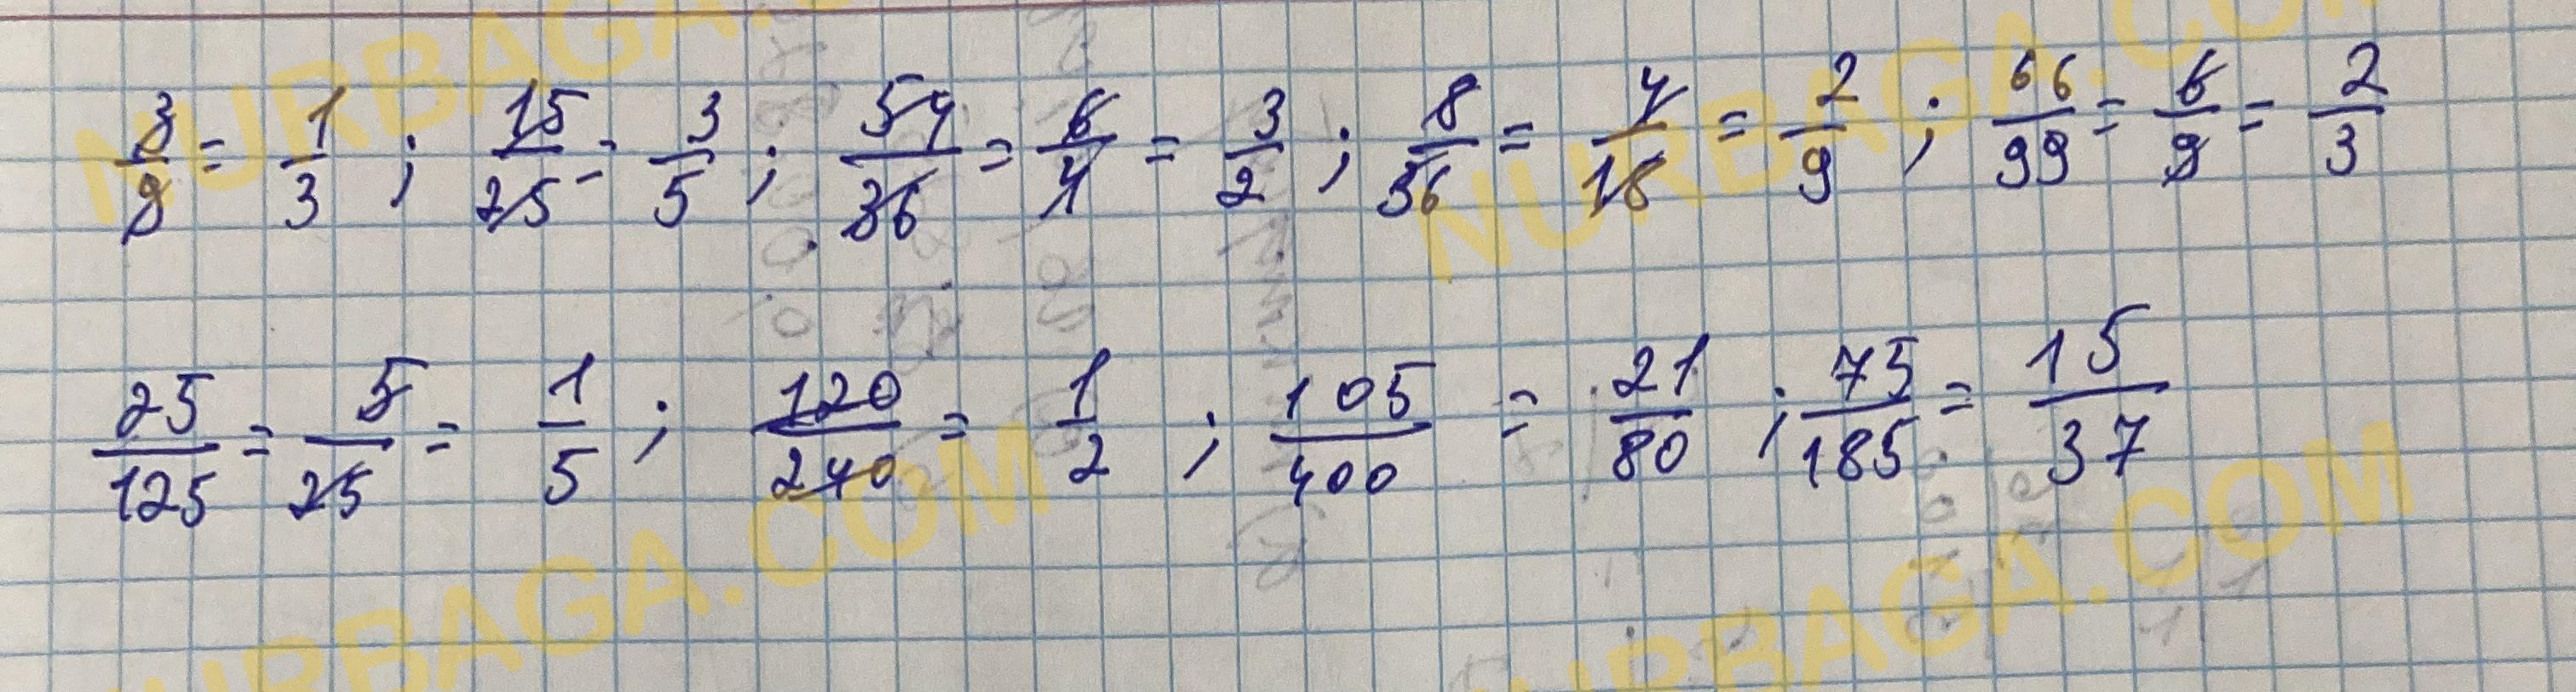 3/9 = 1/3 ; 15/25 = 3/5 ; 54/36 = 6/4 = 3/2 ; 8/36 = 4/18 = 2/9 ; 66/99 = 6/9 = 2/3
25/125 = 5/25 = 1/5 ; 120/240 = 1/2 ; 105/400 = 21/80 ; 75/185 = 15/37
NURBAGA.COM NURBAGA.COM
NURBAGA.COM NURBAGA.COM